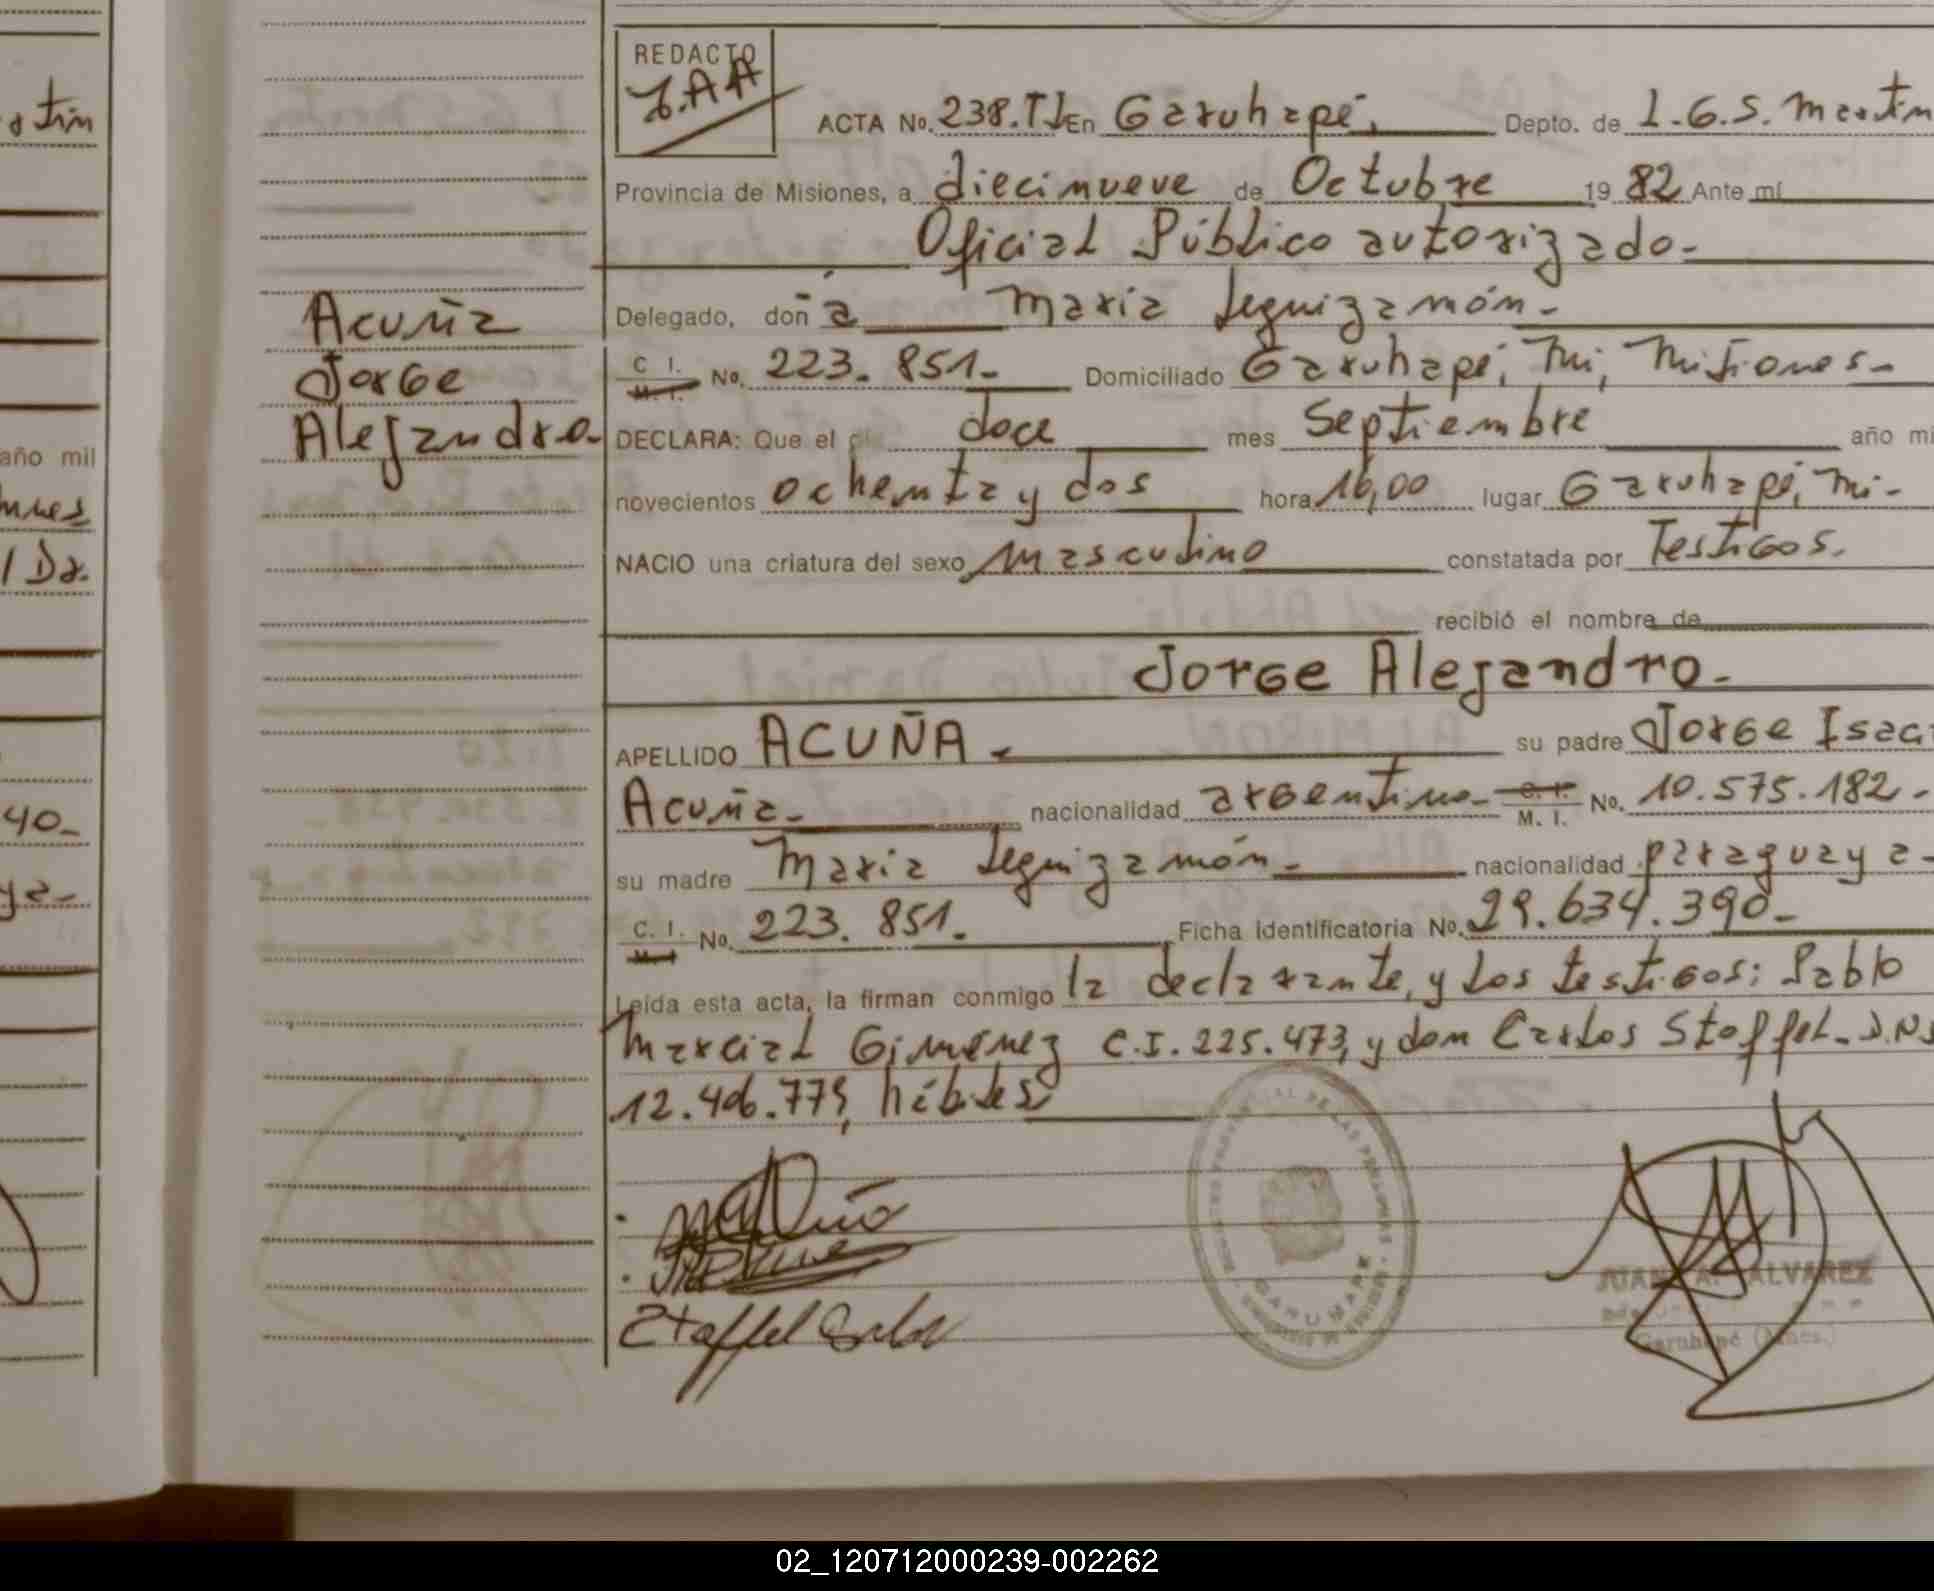 REDACTO
J.A.A
ACTA No. 238.TI En Garuhapé, Depto. de L.G.S. Martin
Provincia de Misiones, a diecinueve de Octubre 1982 Ante mí
Oficial Público autorizado-
Delegado, doña María Leguizamón-
C I. M. I. No. 223.851- Domiciliado Garuhapé, Mi, Misiones-
DECLARA: Que el dí doce mes Septiembre año mi
novecientos ochenta y dos hora 16,00 lugar Garuhapé, Mi-
NACIO una criatura del sexo masculino constatada por Testigos.
recibió el nombre de
Jorge Alejandro-
APELLIDO ACUÑA- su padre Jorge Isac
Acuña- nacionalidad argentino- C. I. M. I. No. 10.575.182-
su madre María Leguizamón- nacionalidad paraguaya-
C. I. M. I. No. 223.851. Ficha Identificatoria No. 29.634.390-
Leída esta acta, la firman conmigo la declarante, y los testigos: Pablo
Marcial Giménez C.I. 225.473, y don Carlos Stoffel- D.N.I
12.406.779, hábiles
Acuña
Jorge
Alejandro-
GARUHAPE
JUAN A. ALVAREZ
Garuhapé (Mnes.)
Stoffel Carlos
atin
año mil
nues
/Da.
40-
ya-
02_120712000239-002262